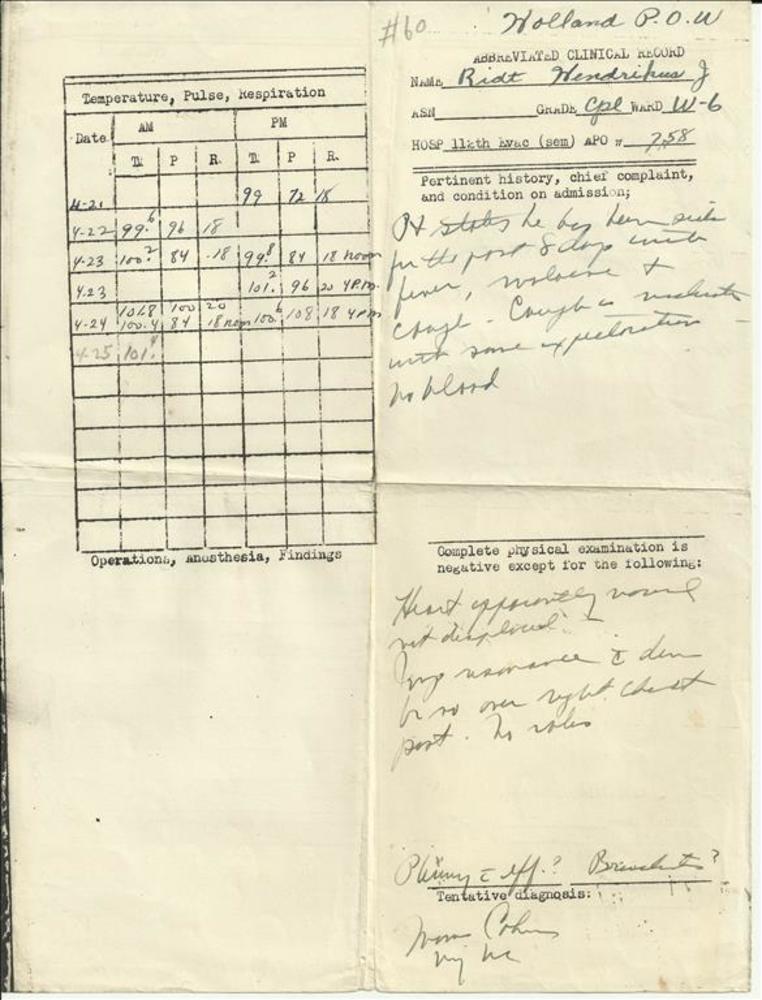 #60 Holland P.O.W
ABBREVIATED CLINICAL RECORD
NAME Ridt Hendrikus J
ASN GRADE Cpl WARD W-6
HOSP 114th Evac (sem) APO # 758
Temperature, Pulse, Respiration
Date AM PM
T. P R. T. P R.
4-21 99 72 18
4-22 99.6 96 18
4-23 100.2 84 18 99.8 84 18 noon
4.23 101.2 96 20 4P.m
4-24 101.8 100 20
100.4 84 18 noon 100.6 108 18 4pm
4-25 101.4
Operations, Anesthesia, Findings
Pertinent history, chief complaint,
and condition on admission;
Pt states he has been sick
for the past 8 days with
fever, malaise +
cough - Cough is moderate
with some expectoration -
no blood
Complete physical examination is
negative except for the following:
Heart apparently normal
not displaced -
Lung resonance c̄ dim
br so over right chest
post. No rales
Pleurisy c̄ eff.? Bronchitis?
Tentative diagnosis:
Cohen